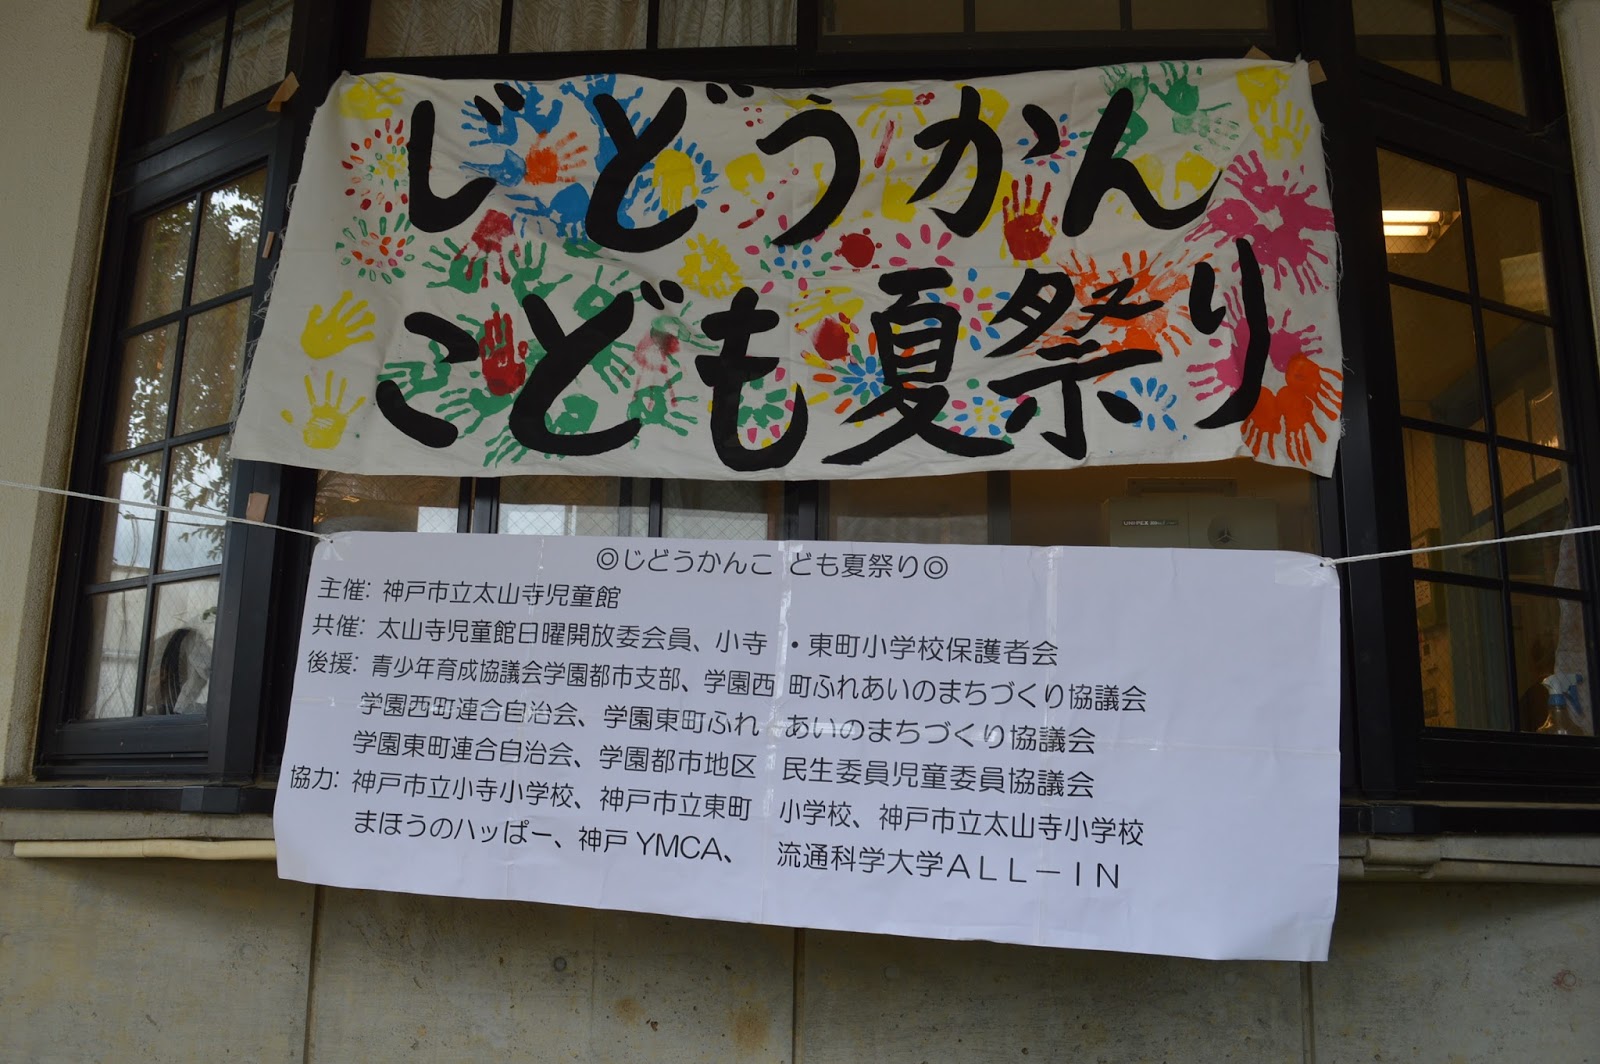 じどうかん
こども夏祭り
◎じどうかんこ ども夏祭り◎
主催: 神戸市立太山寺児童館
共催: 太山寺児童館日曜開放委会員、小寺 ・東町小学校保護者会
後援: 青少年育成協議会学園都市支部、学園西 町ふれあいのまちづくり協議会
学園西町連合自治会、学園東町ふれ あいのまちづくり協議会
学園東町連合自治会、学園都市地区 民生委員児童委員協議会
協力: 神戸市立小寺小学校、神戸市立東町 小学校、神戸市立太山寺小学校
まほうのハッぱー、神戸 YMCA、 流通科学大学ALL－IN